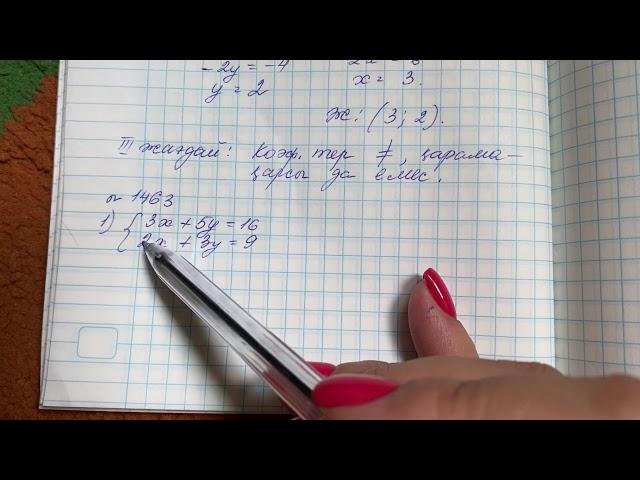 -2y = -4
y = 2
x = 3.
Ж: (3; 2).
III жағдай: Коэф. тер ≠, қарама-
қарсы да емес.
№ 1463
1) { 3x + 5y = 16
2x + 3y = 9